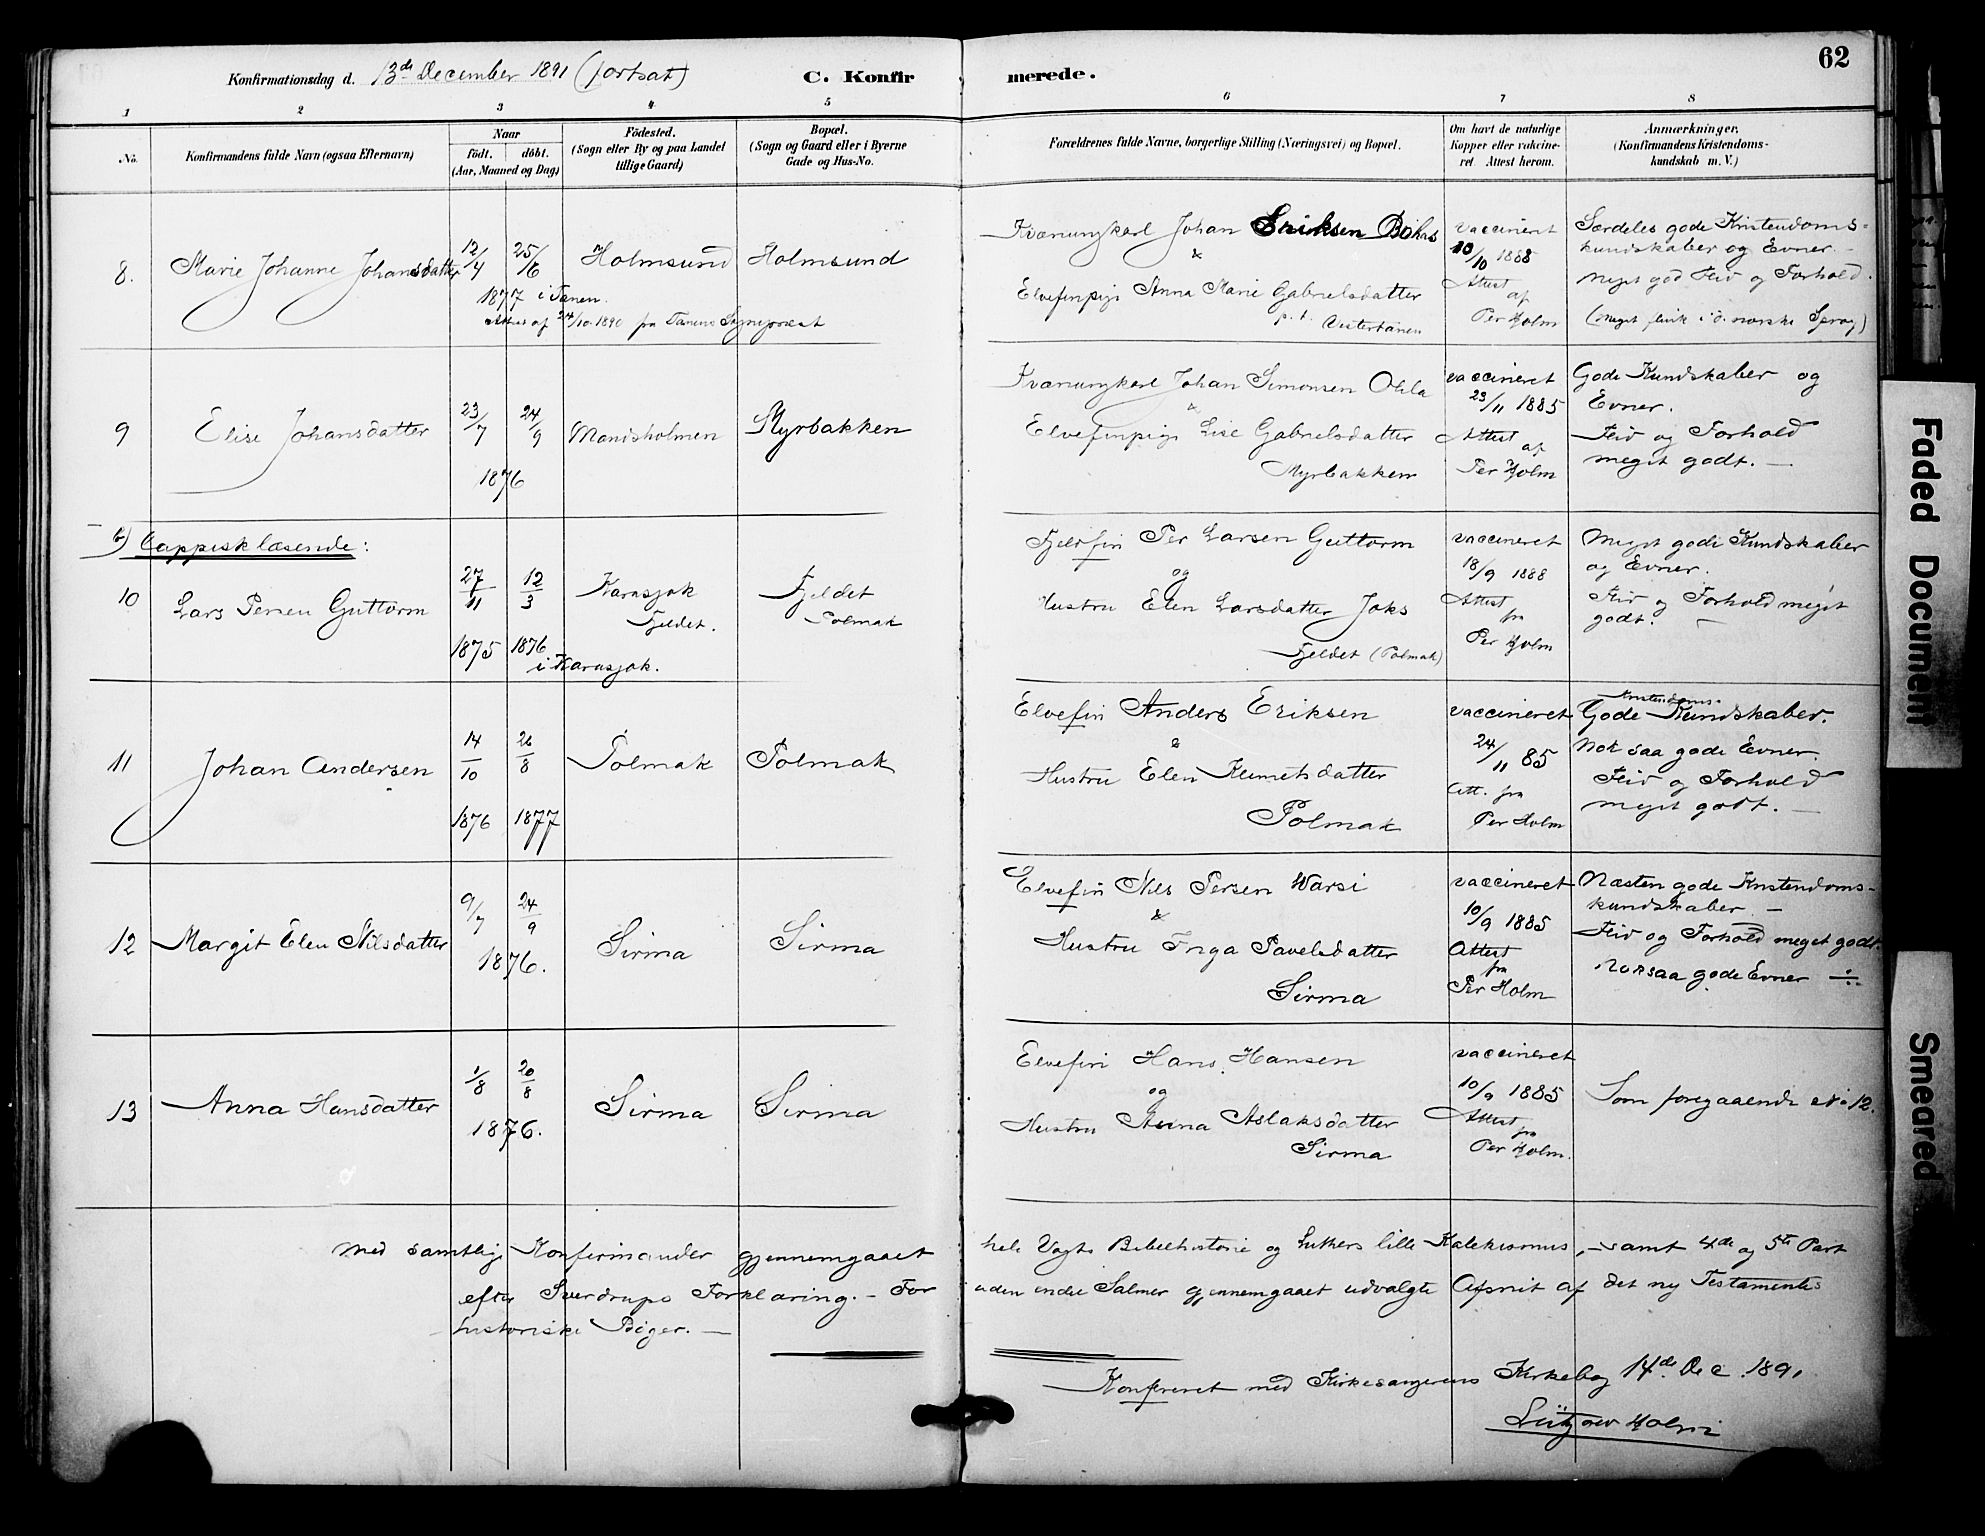 62
Konfirmationsdag d. 13de December 1891 (fortsat) C. Konfirmerede.
1 2 3 4 5 6 7 8
No. Konfirmandens fulde Navn (ogsaa Efternavn)
Naar
født. døbt.
(Aar, Maaned og Dag)
Fødested.
(Sogn eller By og paa Landet
tillige Gaard)
Bopæl.
(Sogn og Gaard eller i Byerne
Gade og Hus-No.
Forældrenes fulde Navne, borgerlige Stilling (Næringsvei) og Bopæl.
Om havt de naturlige
Kopper eller vakcine-
ret. Attest herom.
Anmærkninger.
(Konfirmandens Kristendoms-
kundskab m. V.)
8. Marie Johanne Johansdatter
12/4 25/6
1877 i Tanen.
Attest af 24/10 1890 fra Tanens Sognepræst
Holmsund
Holmsund
Kvænungkarl Johan Eriksen Bohas
&
Elvefinpige Anna Marie Gabrielsdatter
p.t. Vestertanen
vaccineret
10/10 1888
Attest
af
Per Holm
Særdeles gode Kristendoms-
kundskaber og Evner. -
Meget god Flid og Forhold.
(Meget flink i d. norske Sprog)
9 Elise Johansdatter
23/7 24/9
1876
Mandsholmen
Myrbakken
Kvænungkarl Johan Simonsen
&
Elvefinpige Lise Gabrielsdatter
Myrbakken
vaccineret
23/11 1885
Attest
af
Per Holm
Gode Kundskaber og
Evner.
Flid og Forhold
meget godt. -
b) Lappisk læsende:
10 Lars Persen Guttorm
27/11 12/3
1875 1876
i Karasjok.
Karasjok
Fjeldet.
Fjeldet
Polmak
Fjeldfin Per Larsen Guttorm
og
Hustru Elen Larsdatter Joks
Fjeldet (Polmak)
vaccineret
18/9 1888
Attest
fra
Per Holm
Meget gode Kundskaber
og Evner.
Flid og Forhold meget
godt. -
11 Johan Andersen
14/10 26/8
1876 1877
Polmak
Polmak
Elvefin Anders Eriksen
&
Hustru Elen Klemetsdatter
Polmak
vaccineret
24/11 85
Att. fra
Per Holm
Kristendoms-
Gode Kundskaber.
Nok saa gode Evner.
Flid og Forhold
meget godt. -
12 Margit Elen Nilsdatter
9/7 24/9
1876.
Sirma
Sirma
Elvefin Nils Persen Warsi
&
Hustru Inga Pavelsdatter
Sirma
vaccineret
10/9 1885
Attest
fra
Per Holm
Næsten gode Kristendoms-
kundskaber -
Flid og Forhold meget godt.
Noksaa gode Evner
13 Anna Hansdatter
1/8 20/8
1876.
Sirma
Sirma
Elvefin Hans Hansen
og
Hustru Anna Aslaksdatter
Sirma
vaccineret
10/9 1885
Attest
fra
Per Holm.
Som foregaaende No 12.
Med samtlige Konfirmander gjennemgaaet hele Vogts Bibelhistorie og Luthers lille Katekismus, - samt 4de og 5te Part
efter Sverdrups Forklaring. - For uden endel Salmer gjennemgaaet udvalgte Afsnit af det ny Testamentes
historiske Bøger. -
Konfereret med Kirkesangerens Kirkebog 14de Dec. 1891
Lützow Holm
Faded Document
Smeared